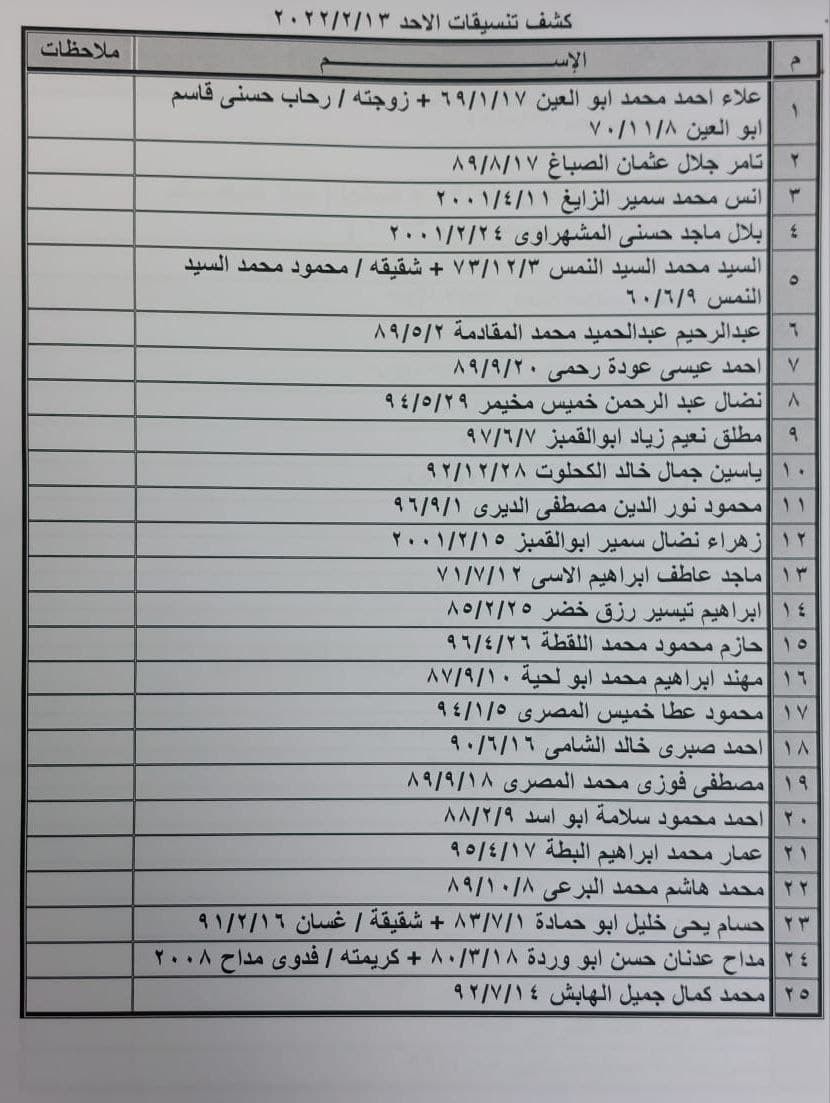 كشف تنسيقات الاحد ٢٠٢٢/٢/١٣
م الإســــــــم ملاحظات
١ علاء احمد محمد ابو العين ٦٩/١/١٧ + زوجته / رحاب حسنى قاسم
ابو العين ٧٠/١١/٨
٢ تامر جلال عثمان الصباغ ٨٩/٨/١٧
٣ انس محمد سمير الزايغ ٢٠٠١/٤/١١
٤ بلال ماجد حسنى المشهراوى ٢٠٠١/٢/٢٤
٥ السيد محمد السيد النمس ٧٣/١٢/٣ + شقيقه / محمود محمد السيد
النمس ٦٠/٦/٩
٦ عبدالرحيم عبدالحميد محمد المقادمة ٨٩/٥/٢
٧ احمد عيسى عودة رحمى ٨٩/٩/٢٠
٨ نضال عبد الرحمن خميس مخيمر ٩٤/٥/٢٩
٩ مطلق نعيم زياد ابوالقمبز ٩٧/٦/٧
١٠ ياسين جمال خالد الكحلوت ٩٢/١٢/٢٨
١١ محمود نور الدين مصطفى الديرى ٩٦/٩/١
١٢ زهراء نضال سمير ابوالقمبز ٢٠٠١/٢/١٥
١٣ ماجد عاطف ابراهيم الاسى ٧١/٧/١٢
١٤ ابراهيم تيسير رزق خضر ٨٥/٢/٢٥
١٥ حازم محمود محمد اللقطة ٩٦/٤/٢٦
١٦ مهند ابراهيم محمد ابو لحية ٨٧/٩/١٠
١٧ محمود عطا خميس المصرى ٩٤/١/٥
١٨ احمد صبرى خالد الشامى ٩٠/٦/١٦
١٩ مصطفى فوزى محمد المصرى ٨٩/٩/١٨
٢٠ احمد محمود سلامة ابو اسد ٨٨/٢/٩
٢١ عمار محمد ابراهيم البطة ٩٥/٤/١٧
٢٢ محمد هاشم محمد البرعى ٨٩/١٠/٨
٢٣ حسام يحى خليل ابو حمادة ٨٣/٧/١ + شقيقة / غسان ٩١/٢/١٦
٢٤ مداح عدنان حسن ابو وردة ٨٠/٣/١٨ + كريمته / فدوى مداح ٢٠٠٨
٢٥ محمد كمال جميل الهابش ٩٢/٧/١٤